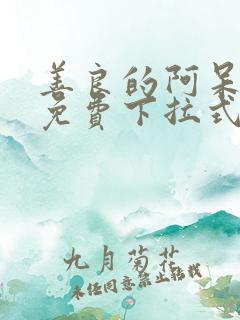 善良的阿呆
免费下拉式
九月菊花
未经同意禁止转载